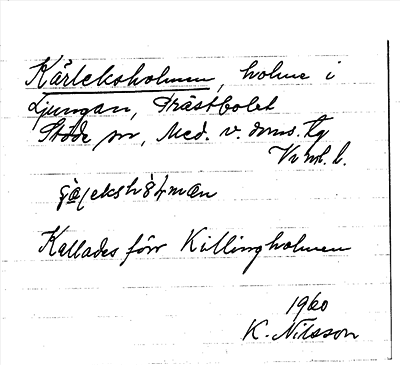 Kärleksholmen, holme i
Ljungan, Prästbolet
Stöde sn, Med. v. doms. tg
Vnrl. l.
Kallades förr Killingholmen
1960
K. Nilsson